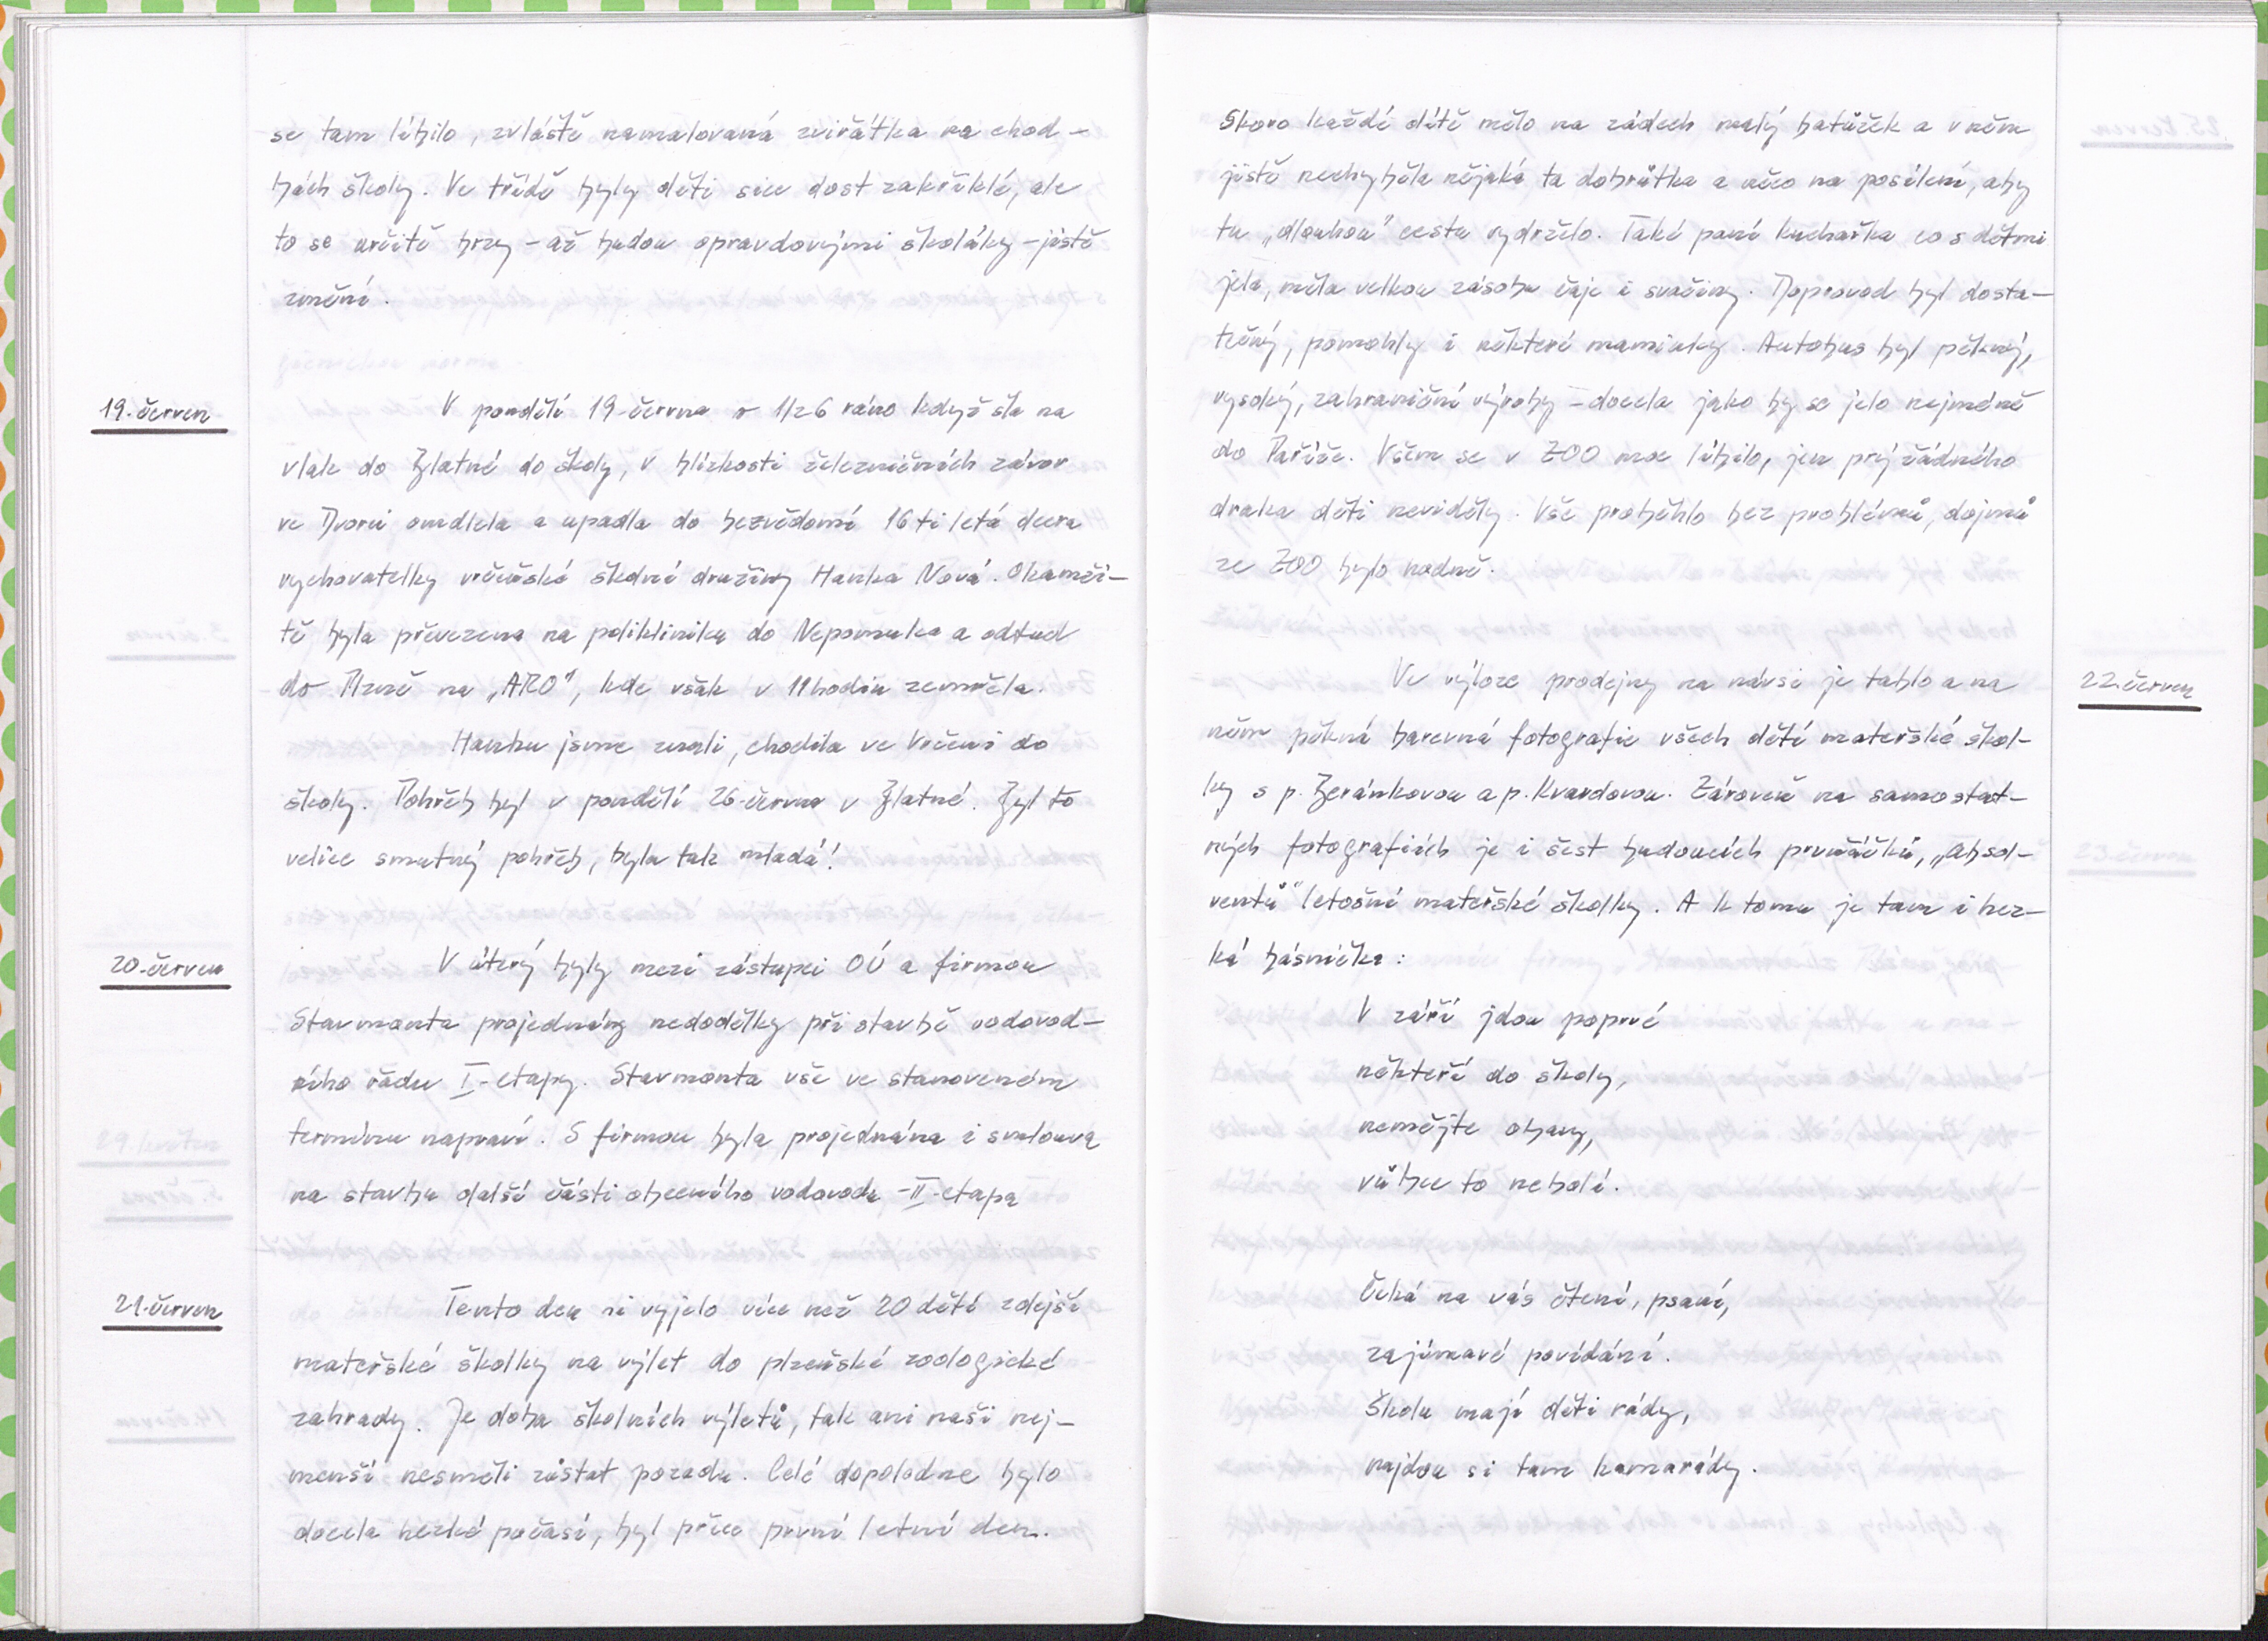 se tam líbilo, zvláště namalovaná zvířátka na chod-
bách školy. Ve třídě byly děti sice dost zakřiklé, ale
to se určitě brzy - až budou opravdovými školáky - jistě
změní.
19. červen
V pondělí 19. června v 1/26 ráno když šla na
vlak do Blatné do školy, v blízkosti železničních závor
ve Dvorci omdlela a upadla do bezvědomí 16 ti letá dcera
vychovatelky vrčeňské školní družiny Hanka Nová. Okamži-
tě byla převezena na polikliniku do Nepomuka a odtud
do Plzně na „ARO", kde však v 11 hodin zemřela.
Hanku jsme znali, chodila ve Vrčeni do
školy. Pohřeb byl v pondělí 26. června v Blatné. Byl to
velice smutný pohřeb, byla tak mladá!
20. červen
V úterý byly mezi zástupci OÚ a firmou
Stavmonta projednány nedodělky při stavbě vodovod-
ního řádu I. etapy. Stavmonta vše ve stanoveném
termínu napraví. S firmou byla projednána i smlouva
na stavbu další části obecního vodovodu - II. etapa
21. červen
Tento den si vyjelo více než 20 dětí zdejší
mateřské školky na výlet do plzeňské zoologické
zahrady. Je doba školních výletů, tak ani naši nej-
menší nesměli zůstat pozadu. Celé dopoledne bylo
docela hezké počasí, byl přece první letní den.
Skoro každé dítě mělo na zádech malý batůžek a v něm
jistě nechyběla nějaká ta dobrůtka a něco na posílení, aby
tu „dlouhou" cestu vydrželo. Také paní kuchařka co s dětmi
jela, měla velkou zásobu čaje i svačiny. Doprovod byl dosta-
tečný, pomohly i některé maminky. Autobus byl pěkný,
vysoký, zahraniční výroby - docela jako by se jelo nejméně
do Paříže. Všem se v ZOO moc líbilo, jen prý žádného
draka děti neviděly. Vše proběhlo bez problémů, dojmů
ze ZOO bylo hodně.
22. červen
Ve výloze prodejny na návsi je tablo a na
něm pěkná barevná fotografie všech dětí mateřské škol-
ky s p. Beránkovou a p. Kvardovou. Zároveň na samostat-
ných fotografiích je i šest budoucích prvňáčků, „absol-
ventů" letošní mateřské školky. A k tomu je tam i hez-
ká básnička:
V září jdou poprvé
někteří do školy,
nemějte obavy,
vůbec to nebolí.
Čeká na vás čtení, psaní,
zajímavé povídání.
Školu mají děti rády,
najdou si tam kamarády.